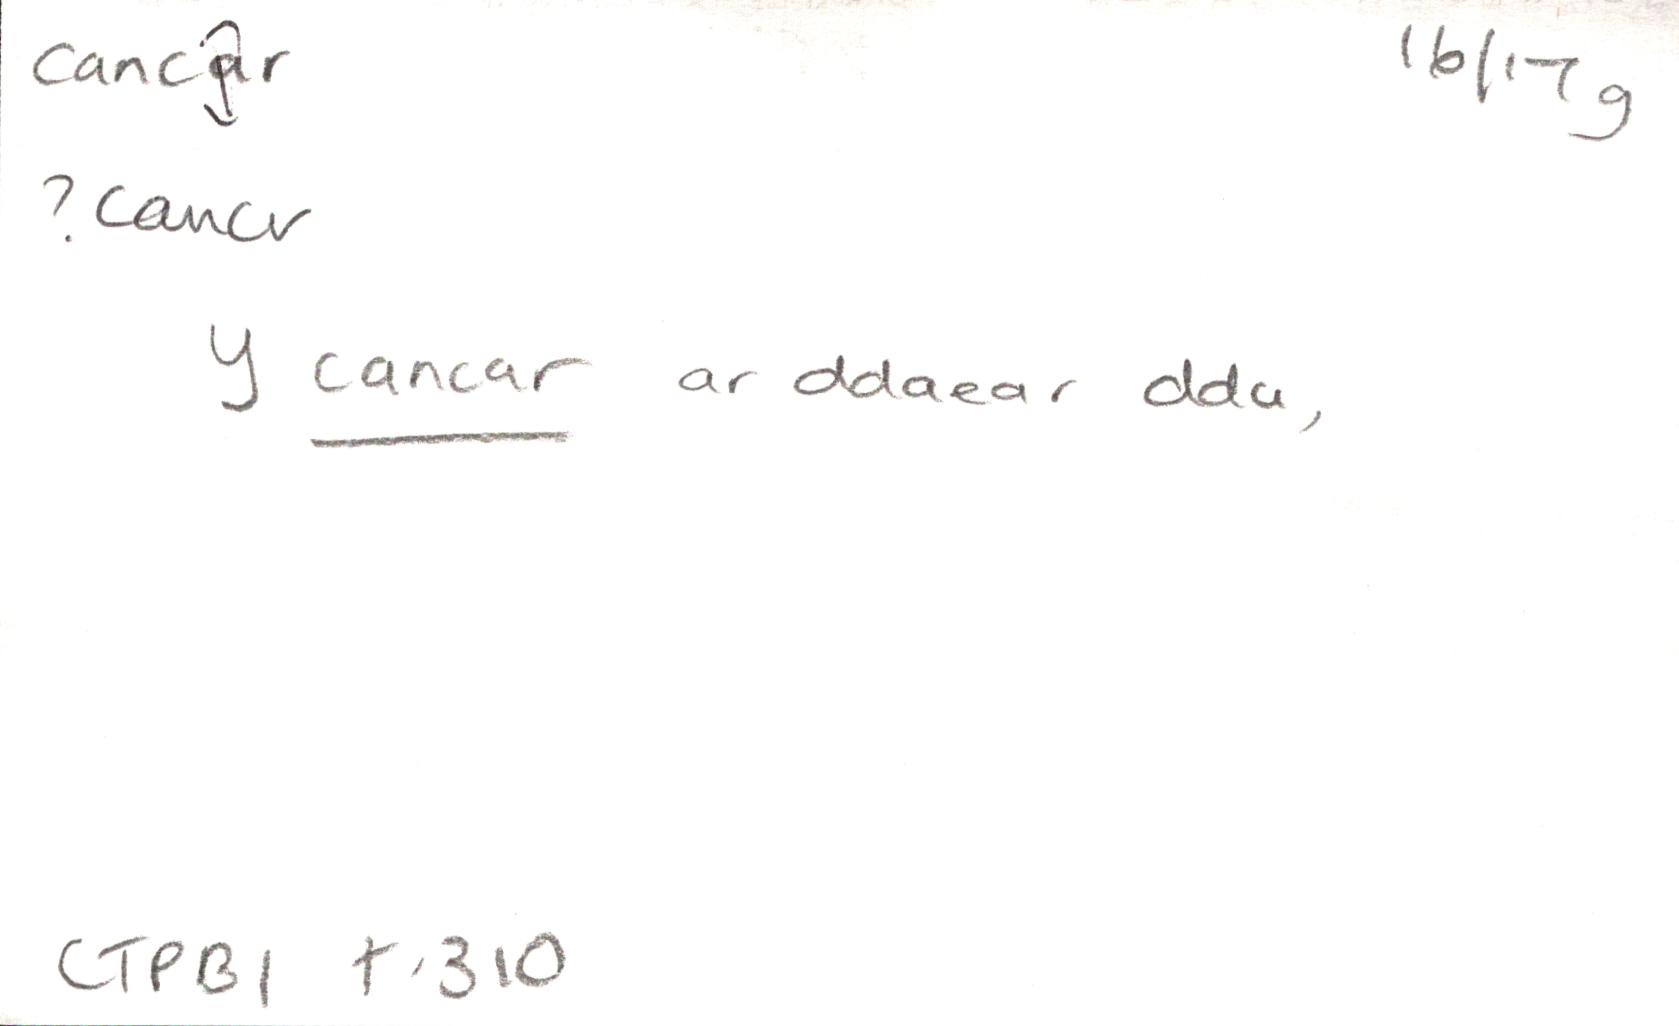 cancar 16/17g
?cancr
Y cancar ar ddaear ddu,
CTPB1 t.310